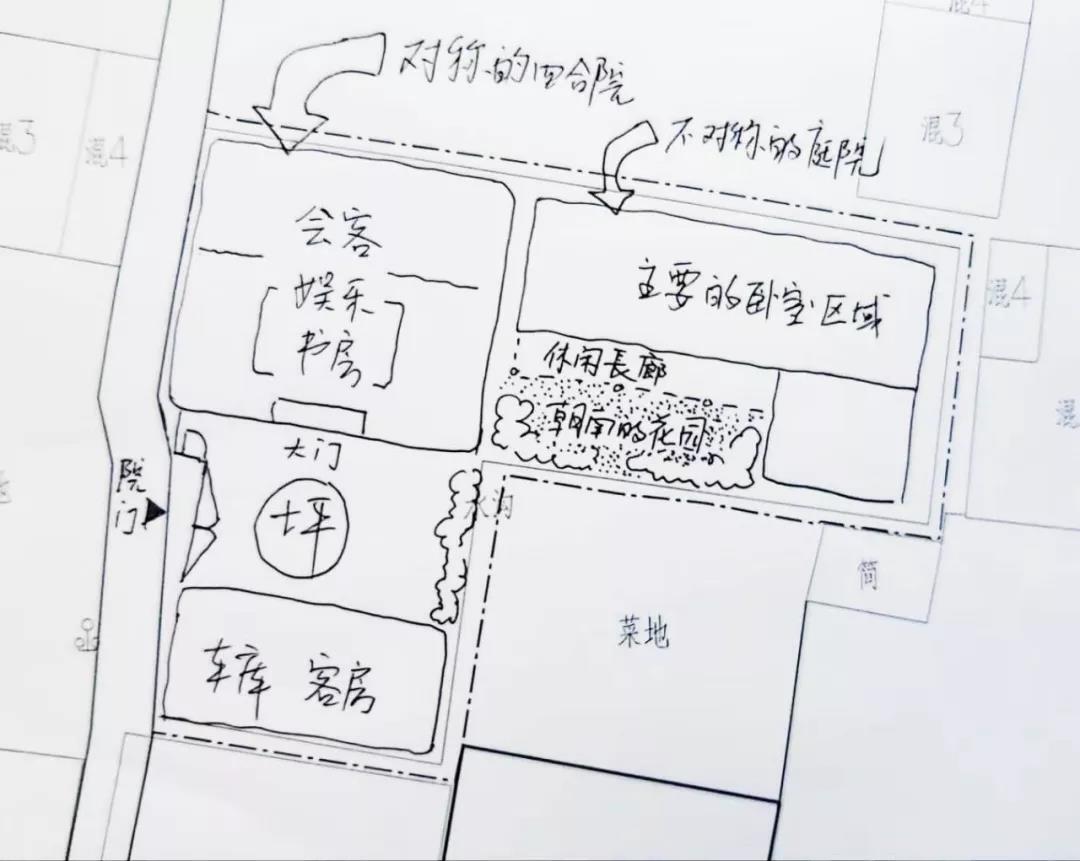 混4
对称的四合院
混3
不对称的庭院
混3
混4
会客
娱乐
书房
主要的卧室区域
混4
休闲長廊
朝南的花园
混
大门
院门
坪
水沟
简
菜地
车库 客房